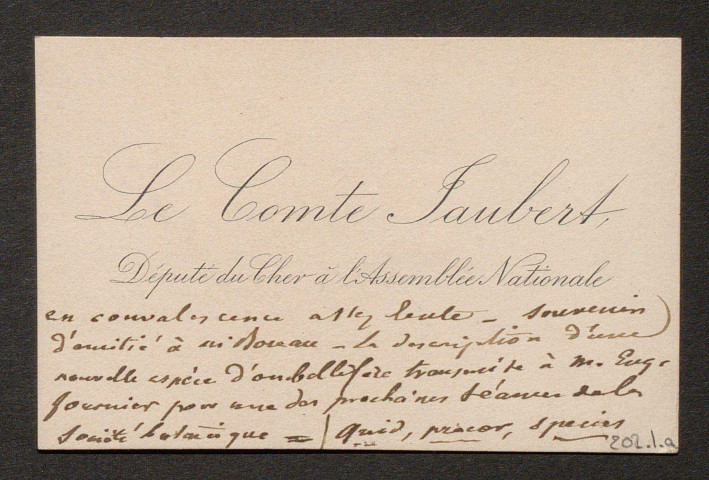 Le Comte Jaubert,
Député du Cher à l'Assemblée Nationale
en convalescence assez lente – souvenir
d'amitié à m Boreau – la description d'une
nouvelle espèce d'ombellifère transmise à m. Eug.
fournier pour une des prochaines séances de la
société botanique = / quid, precor, species
202.1.a